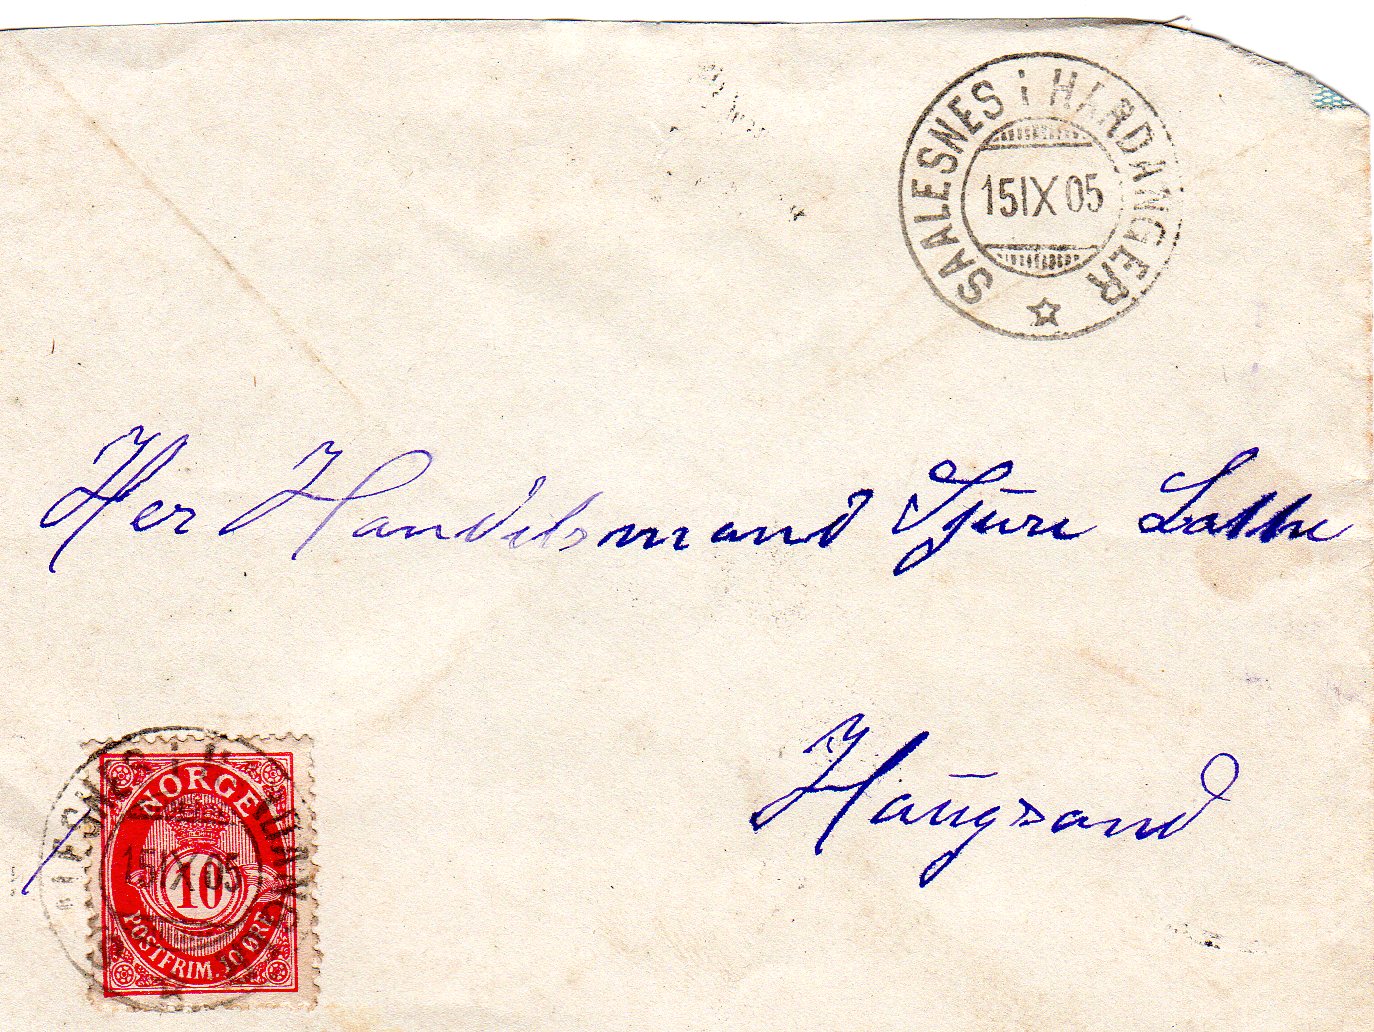 SAALESNES i HARDANGER
15 IX 05
Her Handelsmand Sjur
Haugsand
NORGE
10
POSTFRIM. 10 ØRE
15 IX 05